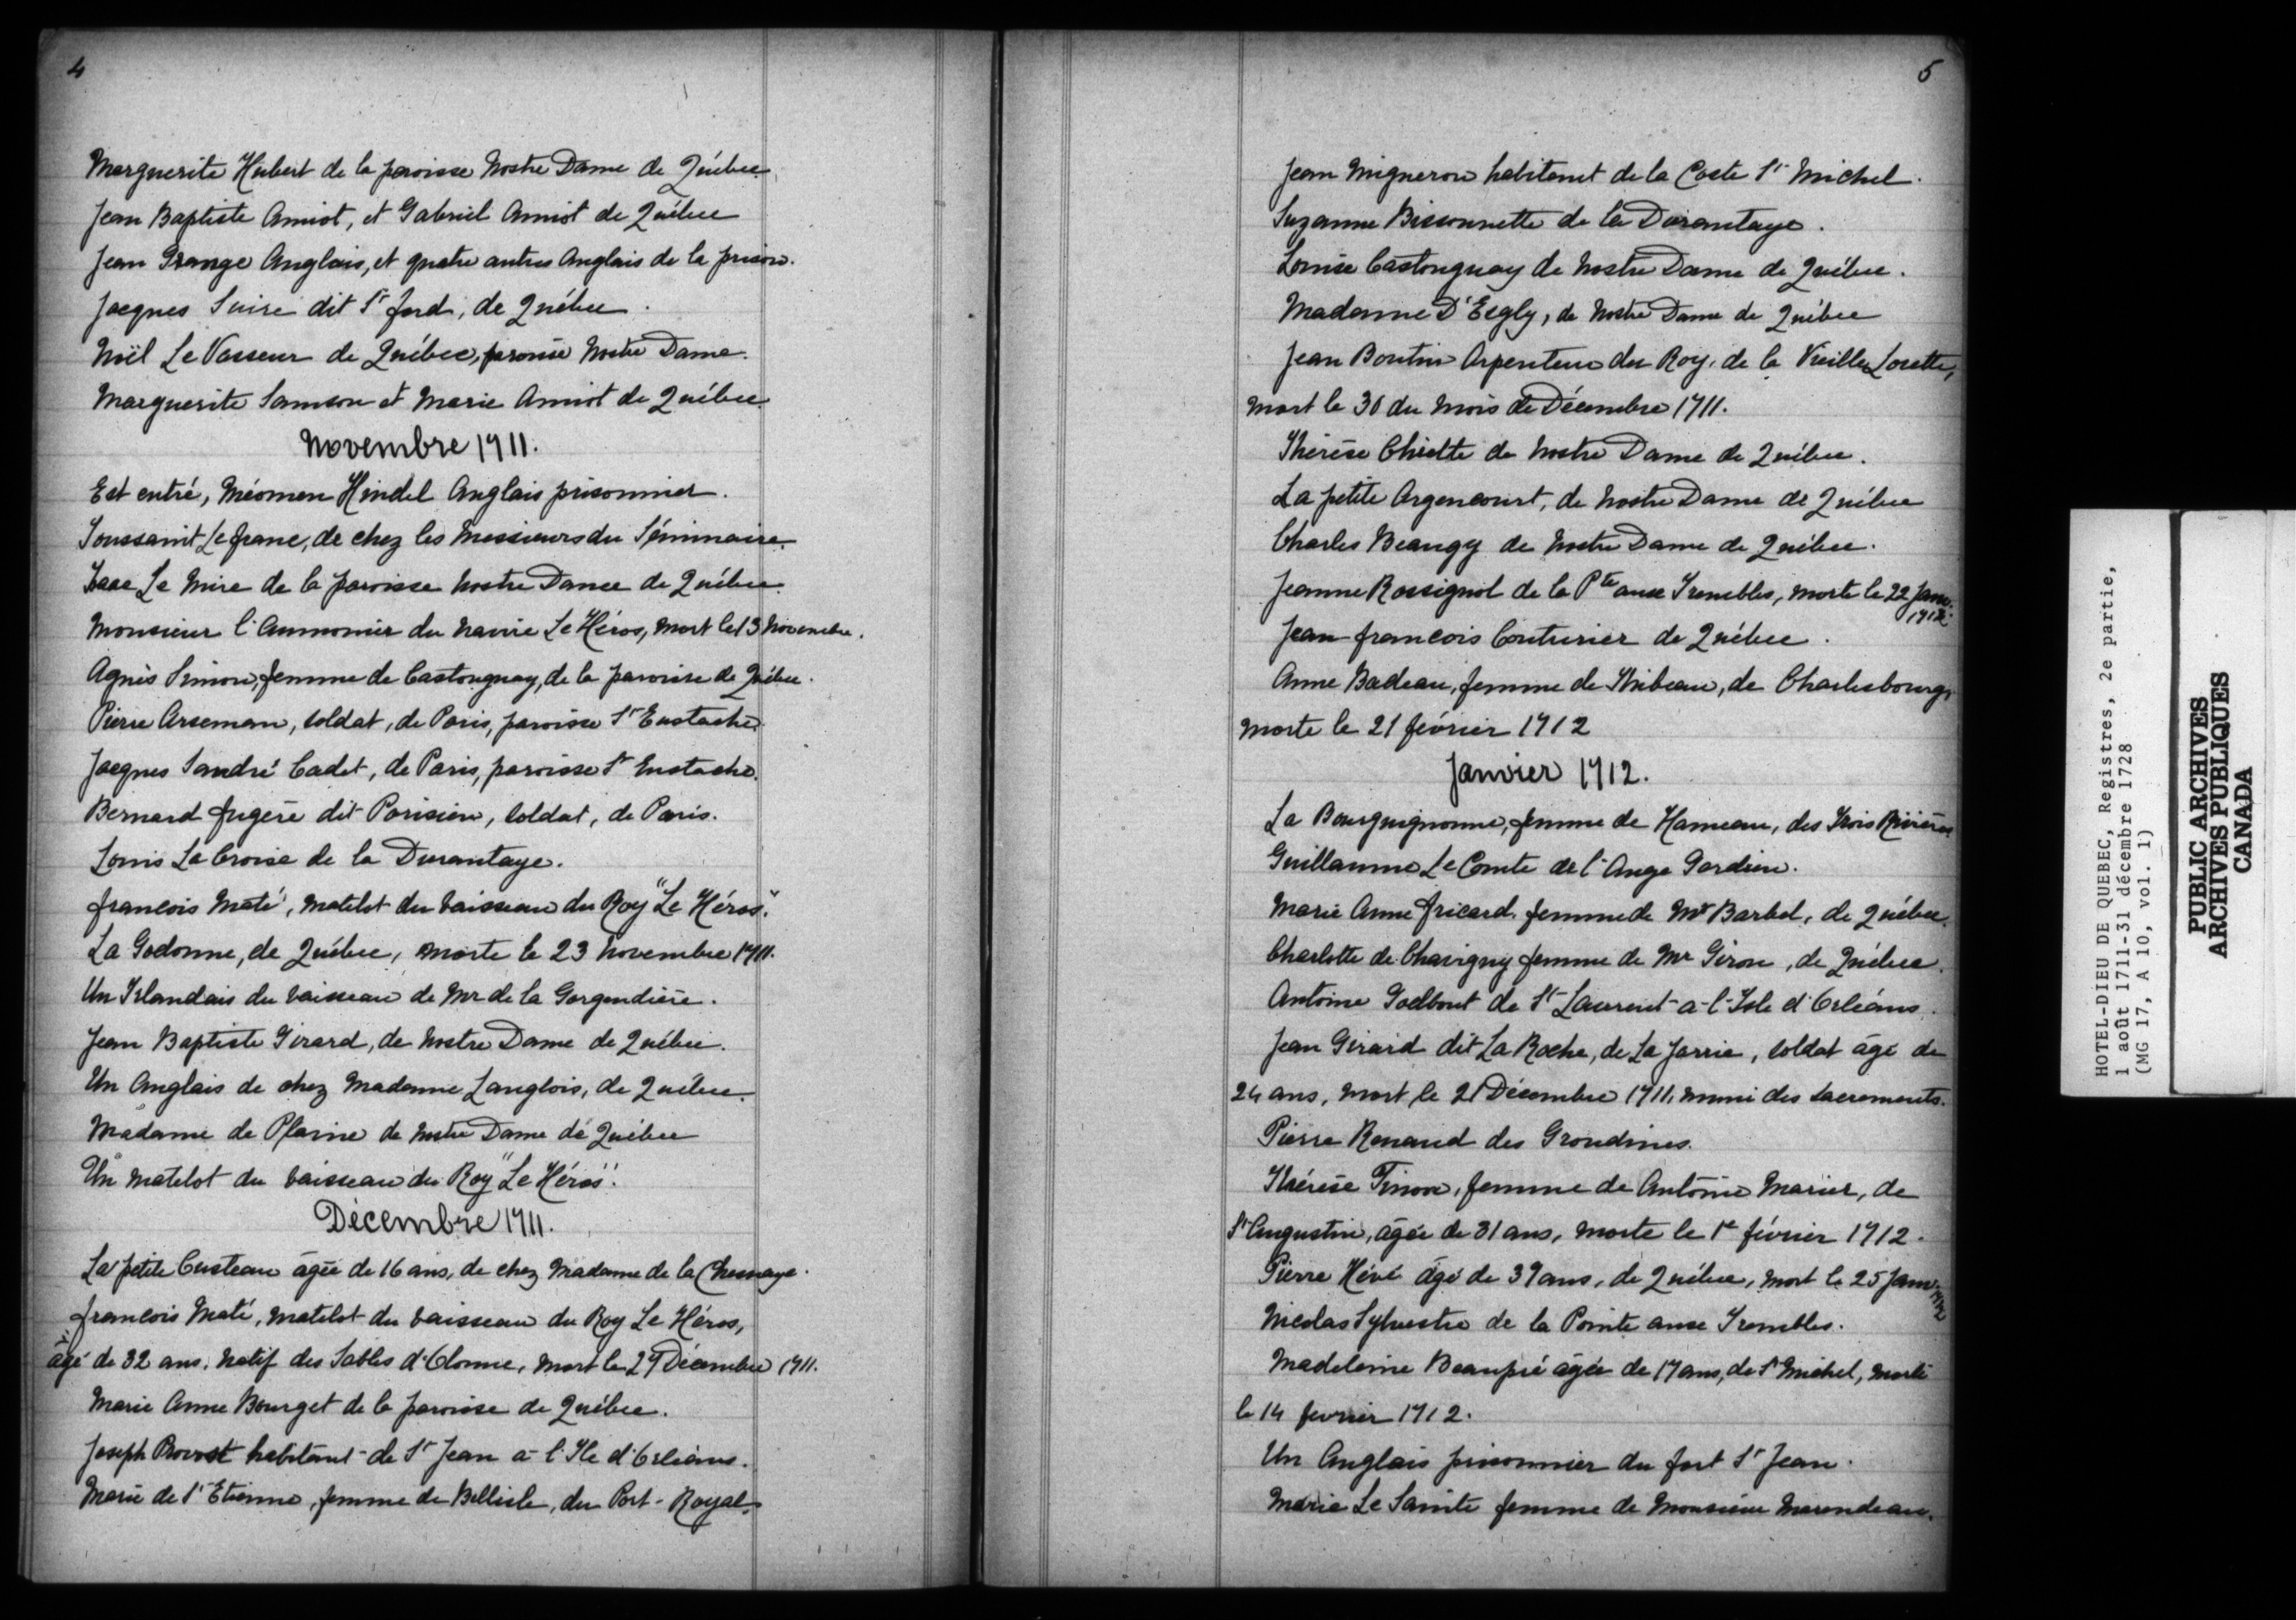 4
Marguerite Hubert de la paroisse Nostre Dame de Québec.
Jean Baptiste Amiot, et Gabriel Amiot de Québec
Jean Grange Anglais, et quatre autres Anglais de la prison.
Jacques Suire dit St ford, de Québec.
Noël Le Vasseur de Québec, paroisse Nostre Dame.
Marguerite Samson et Marie Amiot de Québec.
Novembre 1711.
Est entré, Méomen Hindel Anglais prisonnier.
Toussaint Lefranc, de chez les Messieurs du Séminaire.
Isaac Le Mire de la paroisse Nostre Dame de Québec.
Monsieur l'Aumonier du navire Le Héros, mort le 13 Novembre.
Agnès Simon, femme de Castonguay, de la paroisse de Québec.
Pierre Arseman, soldat, de Paris, paroisse St Eustache.
Jacques Sandré Cadet, de Paris, paroisse St Eustache.
Bernard fugère dit Parisien, soldat, de Paris.
Louis La Croise de la Durantaye.
francois Maté, matelot du vaisseau du Roy "Le Héros".
La Godonne, de Québec, morte le 23 Novembre 1711.
Un Irlandais du vaisseau de Mr de la Gorgendière.
Jean Baptiste Girard, de Nostre Dame de Québec.
Un Anglais de chez Madame Langlois, de Québec.
Madame de Plaine de Nostre Dame de Québec
Un matelot du vaisseau du Roy "Le Héros".
Décembre 1711.
La petite Custeau âgée de 16 ans, de chez Madame de la Chesnaye.
francois Maté, matelot du vaisseau du Roy Le Héros,
âgé de 32 ans, natif des Sables d'Olonne, mort le 27 Décembre 1711.
Marie Anne Bourget de la paroisse de Québec.
Joseph Provost habitant de St Jean à l'Ile d'Orléans.
Marie de St Etienne, femme de Bellisle, du Port-Royal.
5
Jean Migneron habitant de la Coste St Michel.
Suzanne Bissonnette de la Durantaye.
Louise Castonguay de Nostre Dame de Québec.
Madame D'Esgly, de Nostre Dame de Québec
Jean Boutin Arpenteur du Roy, de la Vieille Lorette,
mort le 30 du mois de Décembre 1711.
Thérèse Chiette de Nostre Dame de Québec.
La petite Argencourt, de Nostre Dame de Québec
Charles Beaugy de Nostre Dame de Québec.
Jeanne Rossignol de la Pte aux Trembles, morte le 22 Janv. 1712.
Jean francois Couturier de Québec.
Anne Badeau, femme de Thibeau, de Charlesbourg,
morte le 21 février 1712
Janvier 1712.
La Bourguignonne, femme de Hameau, des Trois Rivières
Guillaume Le Comte de l'Ange Gardien.
Marie Anne fricard, femme de Mr Barbel, de Québec.
Charlotte de Chavigny femme de Mr Giron, de Québec.
Antoine Godbout de St Laurent à l'Isle d'Orléans.
Jean Girard dit La Roche, de La Jarrie, soldat âgé de
24 ans, mort le 21 Décembre 1711, muni des sacrements.
Pierre Renaud des Grondines.
Thérèse Tinon, femme de Antoine Marier, de
St Augustin, âgée de 31 ans, morte le 1e février 1712.
Pierre Hévé âgé de 39 ans, de Québec, mort le 25 Janv. 1712
Nicolas Sylvestre de la Pointe aux Trembles.
Madeleine Beaupré âgée de 17 ans, de St Michel, morte
le 14 fevrier 1712.
Un Anglais prisonnier du fort St Jean.
Marie Le Sainte femme de Monsieur Marendeau.
HOTEL-DIEU DE QUEBEC, Registres, 2e partie,
1 août 1711-31 décembre 1728
(MG 17, A 10, vol. 1)
PUBLIC ARCHIVES
ARCHIVES PUBLIQUES
CANADA